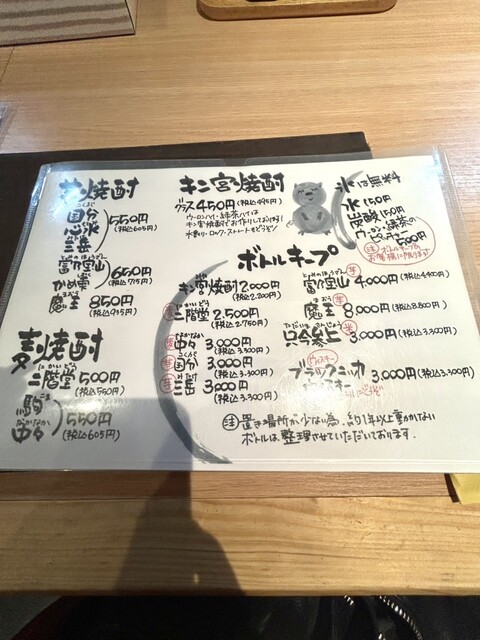 芋焼酎
国分
三岳
550円
(税込605円)
富乃宝山
魔王
650円
(税込715円)
850円
(税込915円)
麦焼酎
にかいどう
二階堂 500円
(税込550円)
こま
駒
なかなか
中々
550円
(税込605円)
キンミヤ焼酎
グラス 450円(税込495円)
ウーロンハイ・緑茶ハイは
キン宮焼酎でお作りしております!
水割り・ロック・ストレートもどうぞ!
氷は無料
水 150円
炭酸 150円
ウーロン・緑茶の
ピッチャー
500円
注 ボトルキープの
お客様に限ります
ボトルキープ
キン宮焼酎 2,000円
(税込2,200円)
麦 二階堂 2,500円
(税込2,750円)
麦 中々 3,000円
(税込3,300円)
芋 国分 3,000円
(税込3,300円)
芋 三岳 3,000円
(税込3,300円)
芋
富乃宝山 4,000円(税込4,400円)
まおう 芋
魔王 8,000円(税込8,800円)
米
只今参上 3,000円(税込3,300円)
ウィスキー
ブラックニッカ 3,000円(税込3,300円)
注 置き場所が少ない為、約1年以上動かない
ボトルは、整理させていただいております。